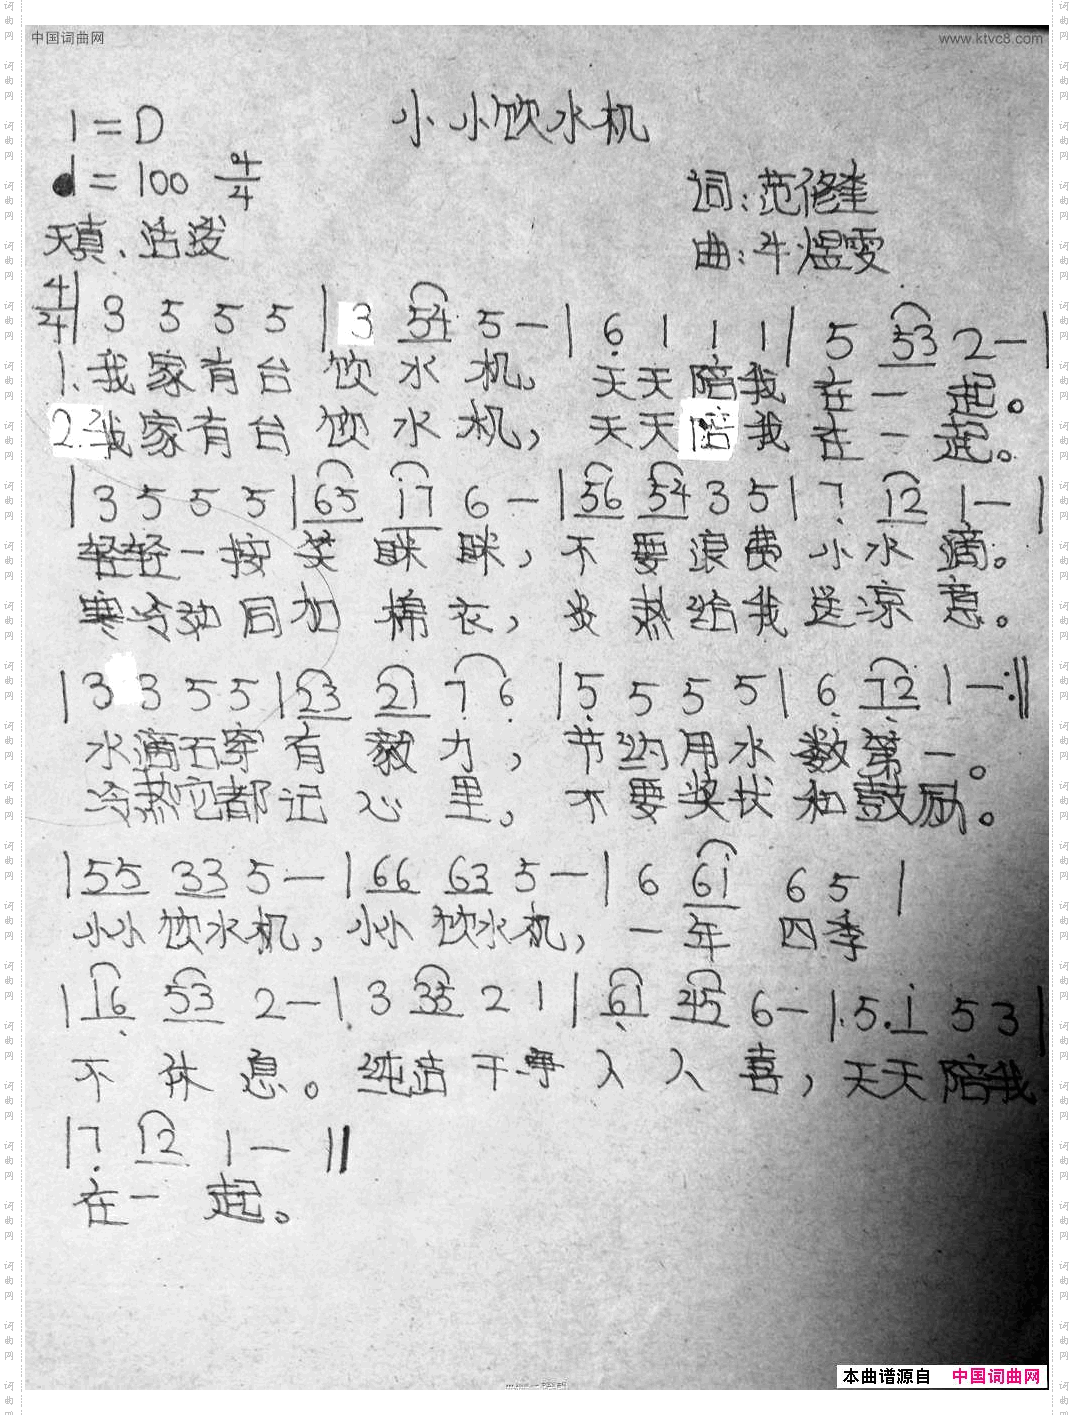 中国词曲网 www.ktvc8.com
小小饮水机
1=D
♩=100 4/4
词:范修奎
天真、活泼
曲:牛煜雯
4/4| 3 5 5 5 | 3 54 5 — | 6 1 1 1 | 5 53 2 — |
1.我家有台 饮水机, 天天陪我在一起。
2.我家有台 饮水机, 天天陪我在一起。
| 3 5 5 5 | 65 17 6 — | 56 54 3 5 | 7 12 1 — |
轻轻一按笑眯眯,不要浪费小水滴。
寒冷动同加棉衣,炎热给我送凉意。
| 3 3 5 5 | 23 21 7 6 | 5 5 5 5 | 6 72 1 — :||
水滴石穿有毅力,节约用水数第一。
冷热它都记心里,不要奖状和鼓励。
| 55 33 5 — | 66 63 5 — | 6 61 6 5 |
小小饮水机,小小饮水机,一年四季
| 16 53 2 — | 3 35 2 1 | 61 45 6 — | 5. 1 5 3 |
不休息。纯洁干净人人喜,天天陪我
| 7 12 1 — ||
在一起。
本曲谱源自 中国词曲网